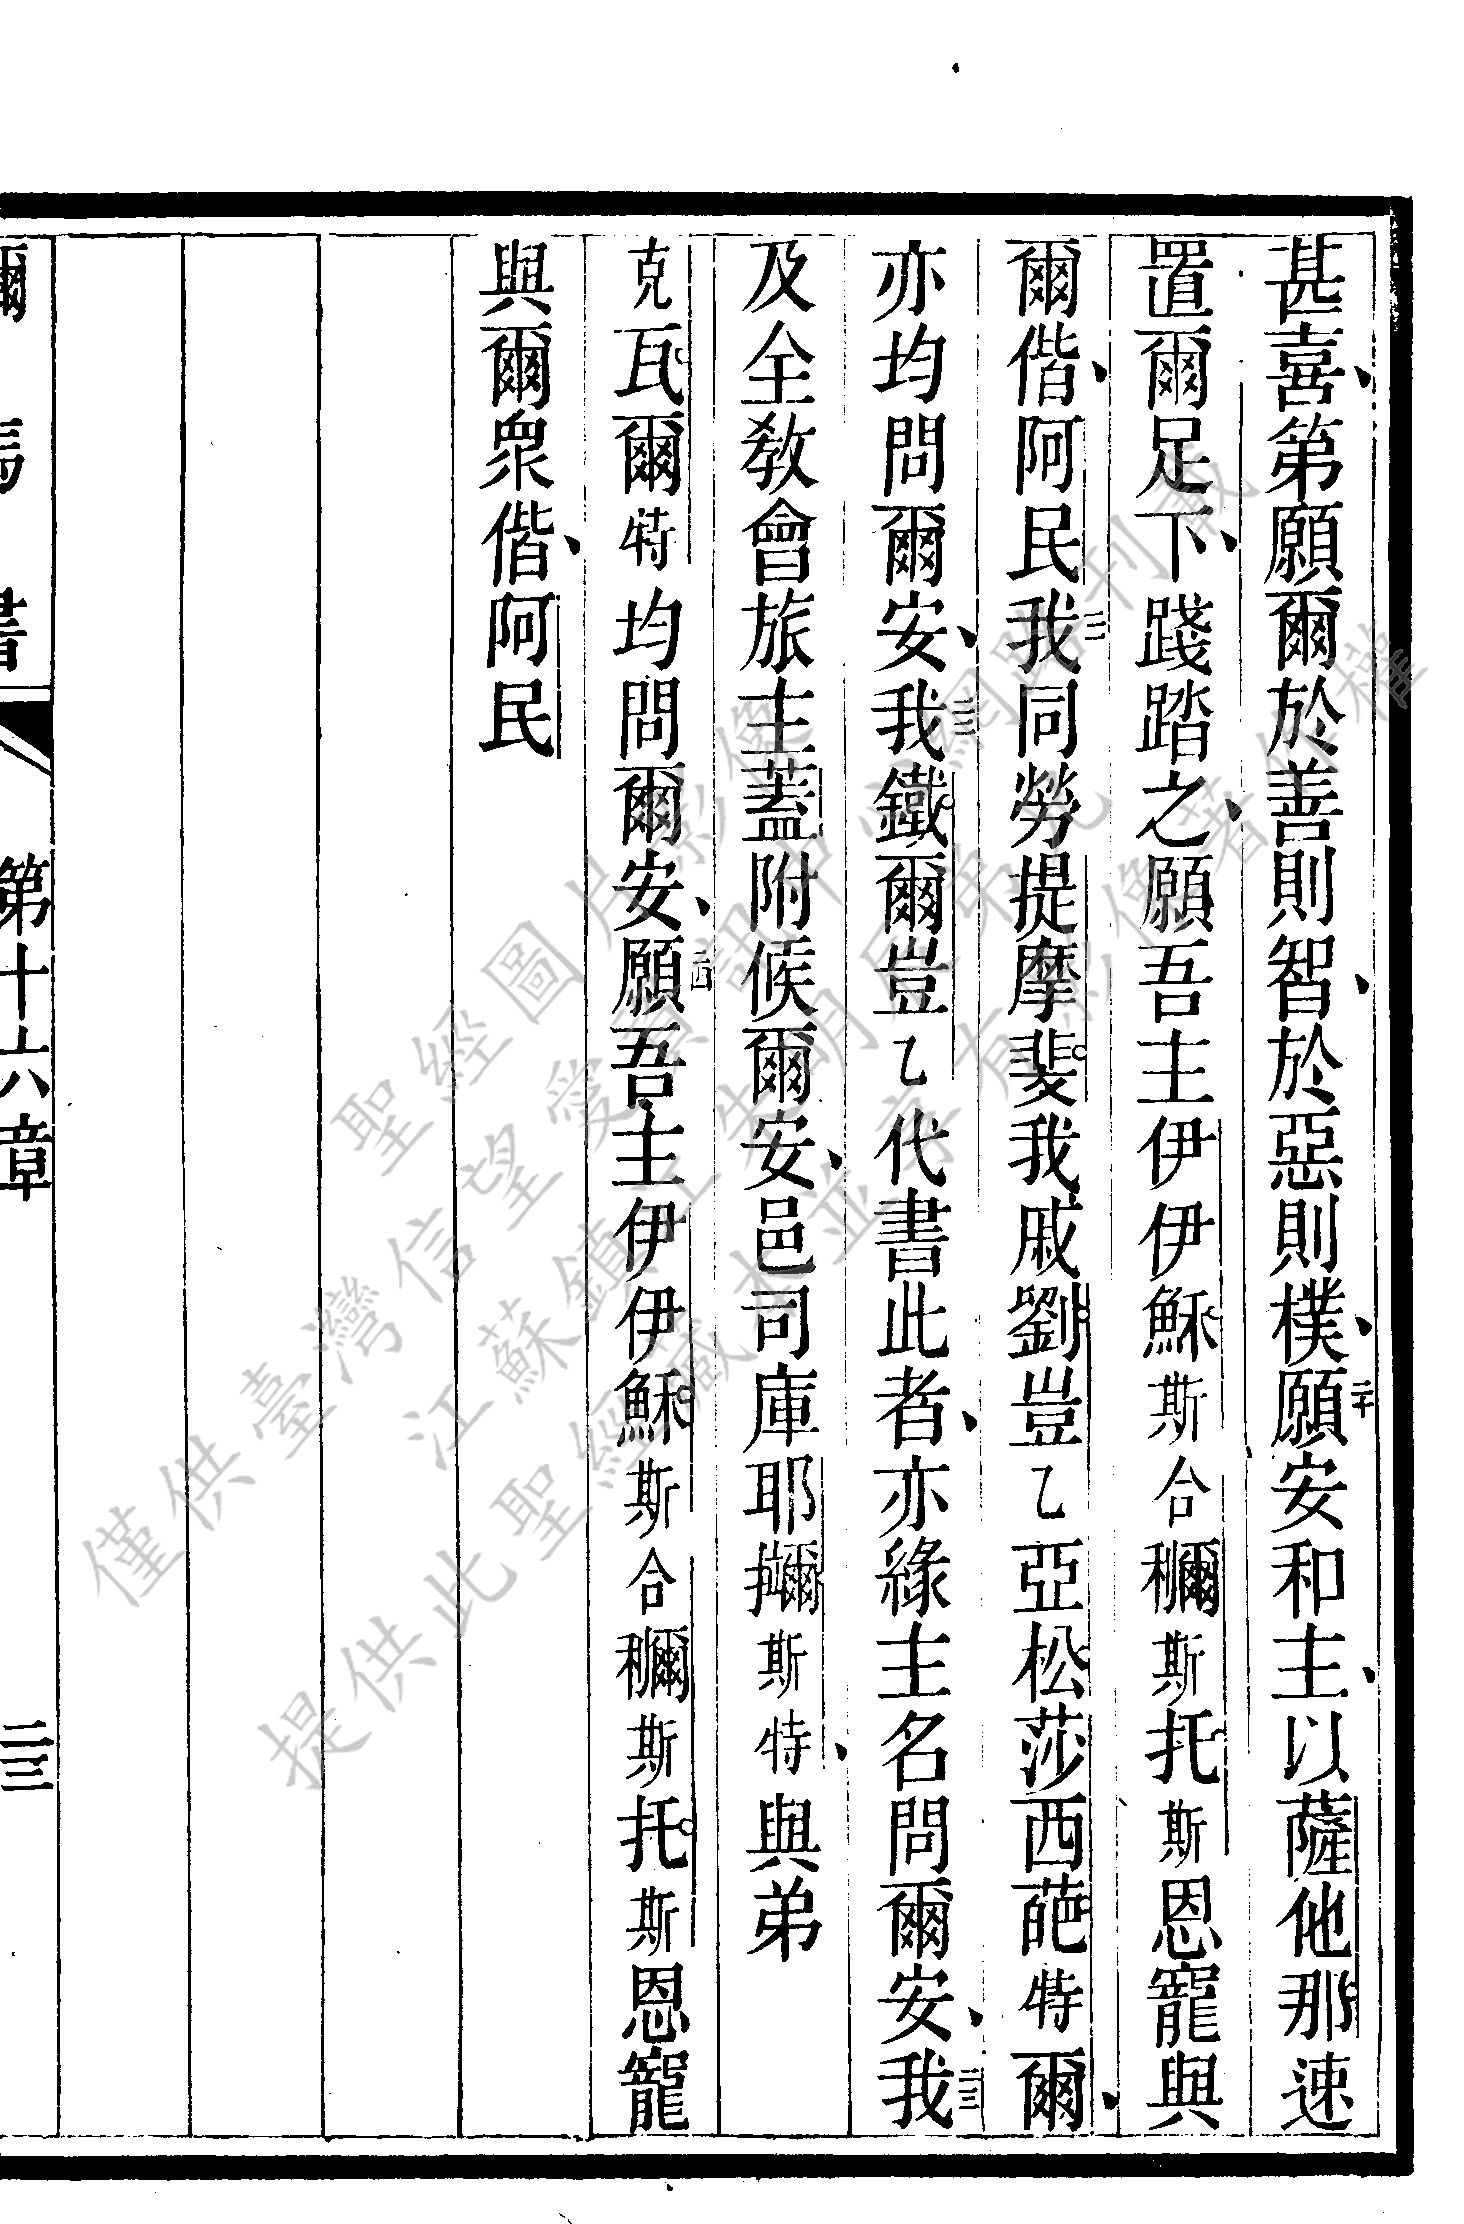 甚喜、第願爾於善則智、於惡則樸、二十願安和主、以薩他那速
置爾足下、踐踏之、願吾主伊伊穌斯合穪斯托斯恩寵與
爾偕、阿民二一我同勞提摩斐我戚劉豈乙亞松莎西葩特爾、
亦均問爾安、二二我鐵爾豈乙代書此者、亦緣主名問爾安、二三我
及全教會旅主蓋附候爾安、邑司庫耶擟斯特、與弟
克瓦爾特均問爾安、二四願吾主伊伊穌斯合穪斯托斯恩寵
與爾衆偕、阿民
爾馬書 第十六章 二三
僅供臺灣信望愛
聖經圖片影像
江蘇鎮江
提供此聖經藏本並享有影像著作權